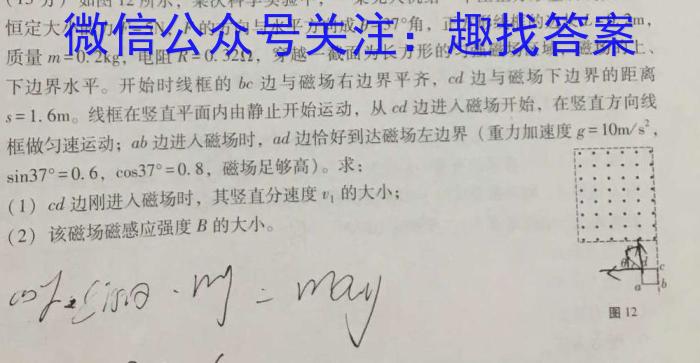 (15分) 如图12所示，某次科学实验中，
恒定大 的方向与水平方向成 37°角，正
微信公众号关注：趣找答案
质量 m=0.2kg，电阻 R=0.32Ω，穿越一截面为长方形的匀强磁场区域，磁场的上、
下边界水平。开始时线框的 bc 边与磁场右边界平齐，cd 边与磁场下边界的距离
s=1.6m。线框在竖直平面内由静止开始运动，从 cd 边进入磁场开始，在竖直方向线
框做匀速运动；ab 边进入磁场时，ad 边恰好到达磁场左边界（重力加速度 g=10m/s²，
sin37°=0.6，cos37°=0.8，磁场足够高）。求：
(1) cd 边刚进入磁场时，其竖直分速度 v₁ 的大小；
(2) 该磁场磁感应强度 B 的大小。
θ d c
a b
图 12
= may